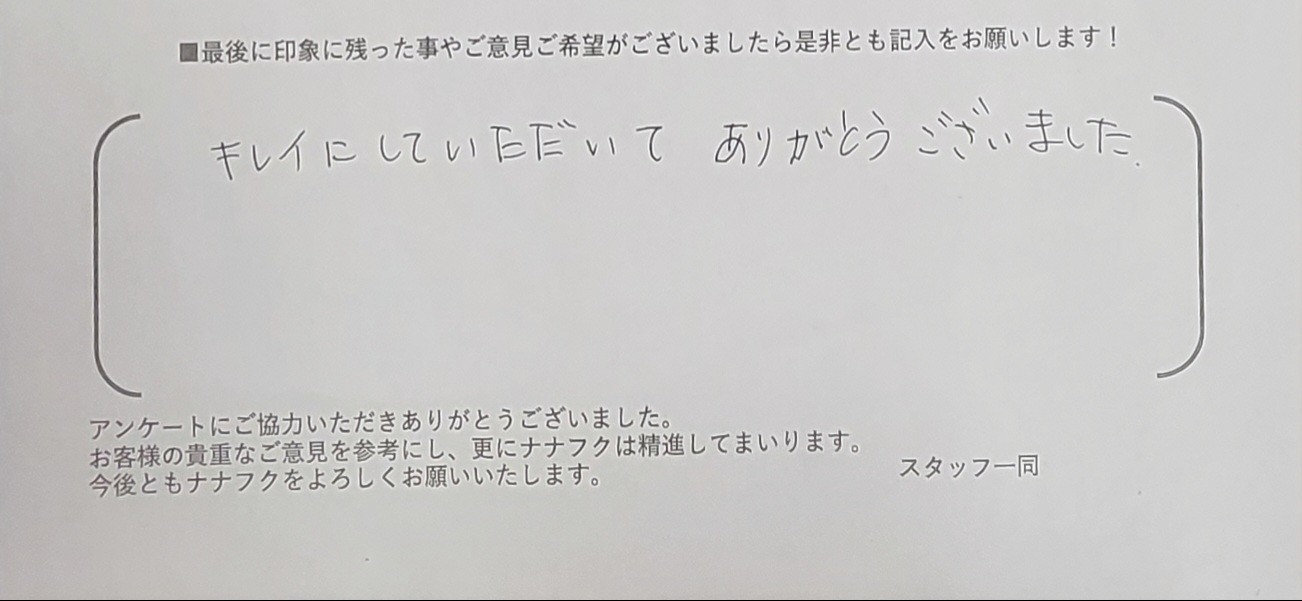 ■最後に印象に残った事やご意見ご希望がございましたら是非とも記入をお願いします！
キレイにしていただいて ありがとうございました.
アンケートにご協力いただきありがとうございました。
お客様の貴重なご意見を参考にし、更にナナフクは精進してまいります。
今後ともナナフクをよろしくお願いいたします。
スタッフ一同